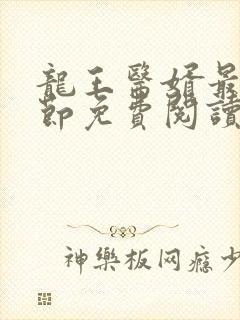 龍王醫婿最
節免費閱讀
神樂板网瘾少